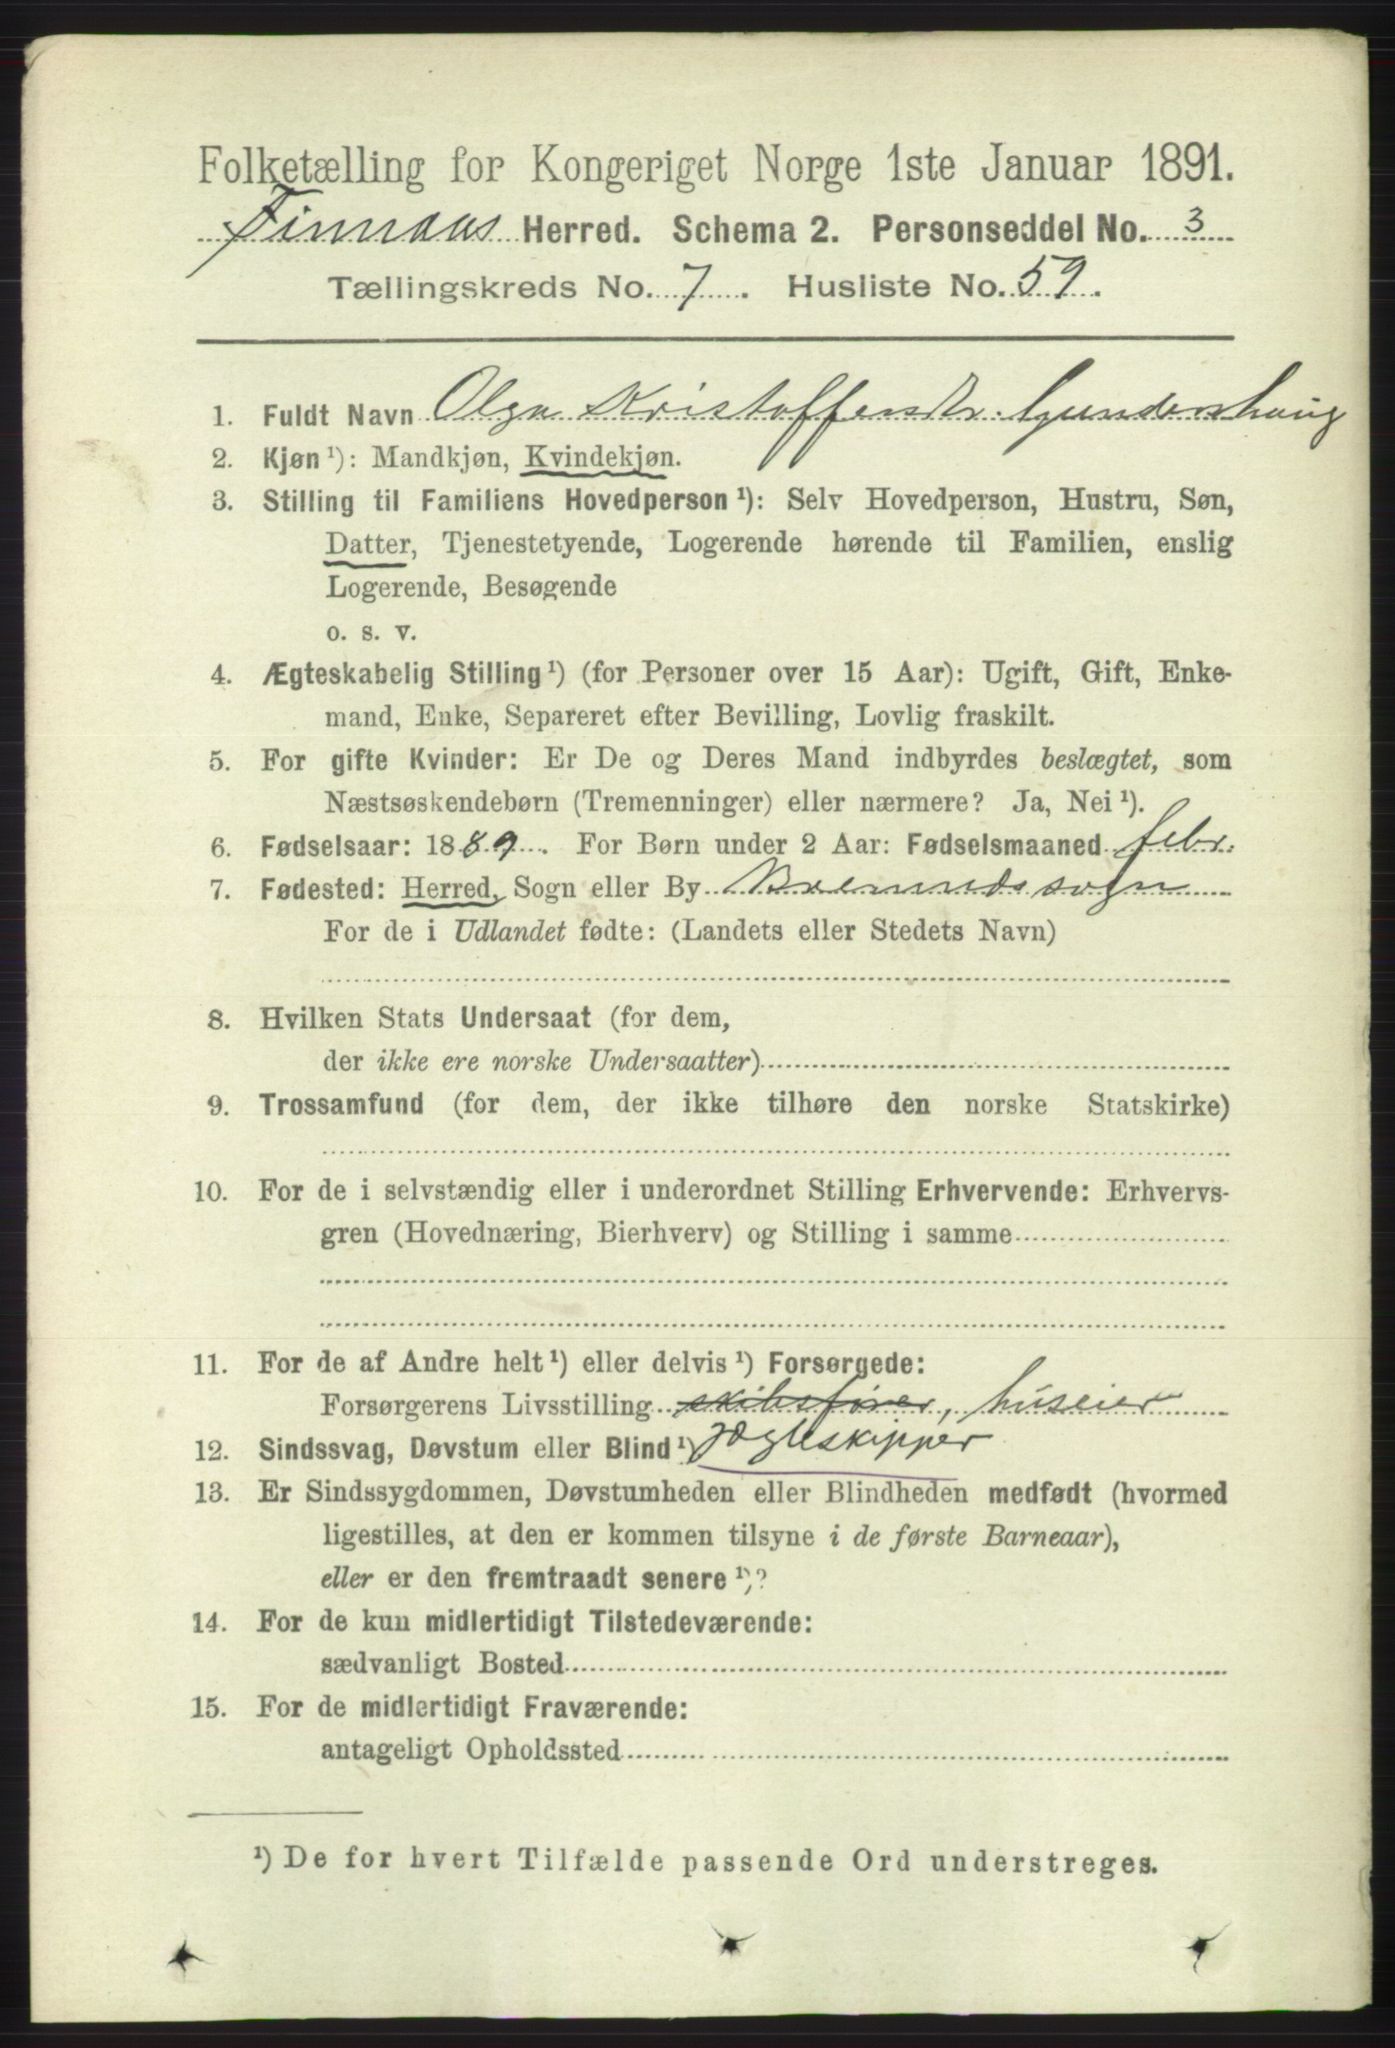 Folketælling for Kongeriget Norge 1ste Januar 1891.
Finnaas Herred. Schema 2. Personseddel No. 3
Tællingskreds No. 7. Husliste No. 59.
1. Fuldt Navn Olga Kristoffersdtr. Gundershaug
2. Kjøn ¹): Mandkjøn, Kvindekjøn.
3. Stilling til Familiens Hovedperson ¹): Selv Hovedperson, Hustru, Søn,
Datter, Tjenestetyende, Logerende hørende til Familien, enslig
Logerende, Besøgende
o. s. v.
4. Ægteskabelig Stilling ¹) (for Personer over 15 Aar): Ugift, Gift, Enke-
mand, Enke, Separeret efter Bevilling, Lovlig fraskilt.
5. For gifte Kvinder: Er De og Deres Mand indbyrdes beslægtet, som
Næstsøskendebørn (Tremenninger) eller nærmere? Ja, Nei ¹).
6. Fødselsaar: 1889. For Børn under 2 Aar: Fødselsmaaned febr.
7. Fødested: Herred, Sogn eller By Bremnæs sogn
For de i Udlandet fødte: (Landets eller Stedets Navn)
8. Hvilken Stats Undersaat (for dem,
der ikke ere norske Undersaatter)
9. Trossamfund (for dem, der ikke tilhøre den norske Statskirke)
10. For de i selvstændig eller i underordnet Stilling Erhvervende: Erhvervs-
gren (Hovednæring, Bierhverv) og Stilling i samme
11. For de af Andre helt ¹) eller delvis ¹) Forsørgede:
Forsørgerens Livsstilling skibsfører, huseier
12. Sindssvag, Døvstum eller Blind ¹) jægteskipper
13. Er Sindssygdommen, Døvstumheden eller Blindheden medfødt (hvormed
ligestilles, at den er kommen tilsyne i de første Barneaar),
eller er den fremtraadt senere ¹)?
14. For de kun midlertidigt Tilstedeværende:
sædvanligt Bosted
15. For de midlertidigt Fraværende:
antageligt Opholdssted
¹) De for hvert Tilfælde passende Ord understreges.